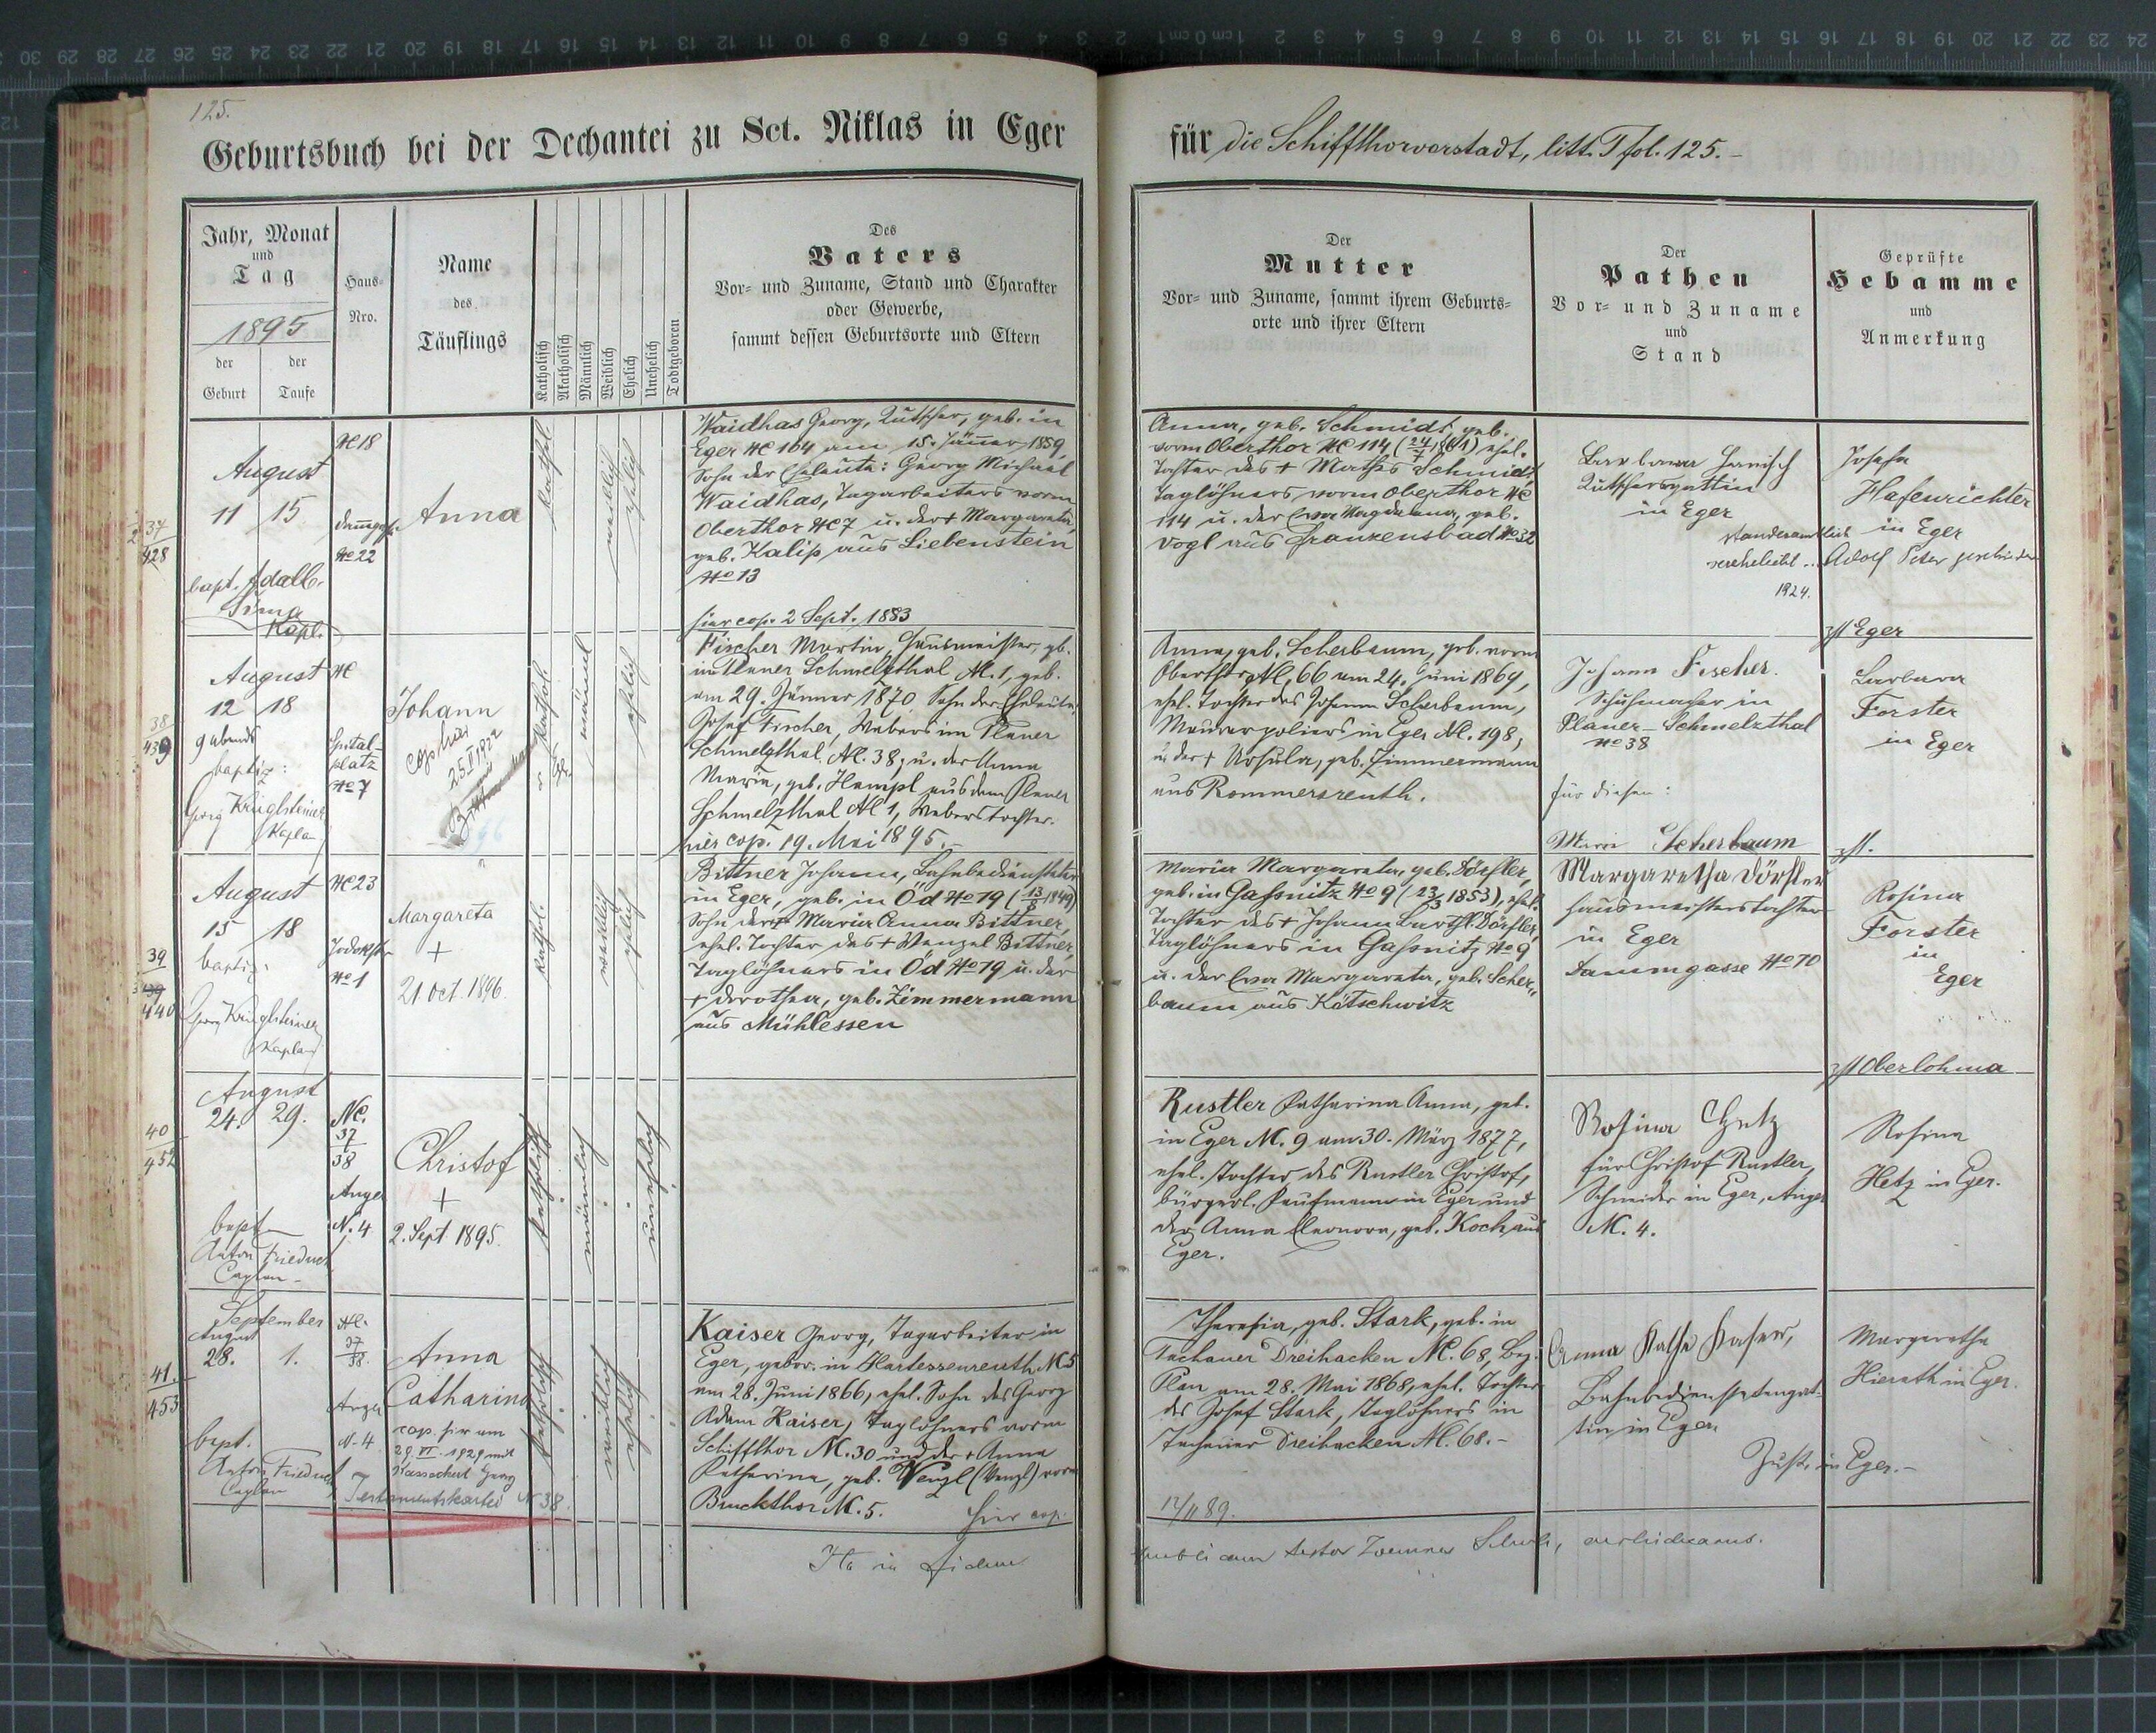 125.
Geburtsbuch bei der Dechantei zu Sct. Niklas in Eger
für die Schiffthorvorstadt, litt. T fol. 125.-
Jahr, Monat
und
Tag
1895
der
Geburt
der
Taufe
Haus-
Nro.
Name
des
Täuflings
Katholisch
Akatholisch
Männlich
Weiblich
Ehelich
Unehelich
Todtgeboren
Des
Vaters
Vor- und Zuname, Stand und Charakter
oder Gewerbe,
sammt dessen Geburtsorte und Eltern
Der
Mutter
Vor- und Zuname, sammt ihrem Geburts-
orte und ihrer Eltern
Der
Pathen
Vor- und Zuname
und
Stand
Geprüfte
Hebamme
und
Anmerkung
37
428
August
11 15
bapt. Adalb.
Sima
Kapl.
NC 18
No 22
Anna
kathol.
weiblich
ehelich
Waidhas Georg, Kutscher, geb. in
Eger NC 164 am 15. Jänner 1859,
Sohn der Eheleute: Georg Michael
Waidhas, Tagarbeiters vorm
Oberthor NC 7 u. der + Margareta,
geb. Kalip aus Liebenstein
No 13
hier cop. 2 Sept. 1883
Anna, geb. Schmidt, geb.
vorm Oberthor NC 114 ehel.
Tochter des + Mathes Schmidt,
Taglöhners vorm Oberthor NC
114 u. der Eva Magdalena, geb.
Vogl aus Franzensbad No 32
Barbara Hanisch
Kutschersgattin
in Eger
Josefa
Hafenrichter
in Eger
standesamtlich
verehelicht Adolf Peter
1924.
zst Eger
38
439
August
12 18
9 abends
baptiz:
Georg Krüglsteiner
Kaplan
NC
Spital-
platz
No 7
Johann
kathol.
männl
ehelich
Fischer Martin, Hausmeister, gb.
im Planer Schmelzthal N. 1, geb.
am 29. Jänner 1870, Sohn der Eheleute
Josef Fischer, Webers im Planer
Schmelzthal, N. 38, u. der Anna
Maria, geb. Hampl aus dem Planer
Schmelzthal N 1, Weberstochter.
hier cop. 19. Mai 1895.-
Anna, geb. Scherbaum, geb. vorm
Oberthor N. 66 am 24. Juni 1869,
ehel. Tochter des Johann Scherbaum,
Maurerpoliers in Eger N. 198,
u. der + Ursula, geb. Zimmermann
aus Rommersreuth.
Johann Fischer.
Schuhmacher in
Planer-Schmelzthal
No 38
für diesen:
Scherbaum
Barbara
Forster
in Eger
zst.
39
440
August
15 18
baptiz:
Georg Krüglsteiner
Kaplan
NC 23
No 1
Margareta
+
21. Oct. 1896.
kathol.
weiblich
ehelich
Bittner Johann, Bahnbediensteter
in Eger, geb. in Öd No 19
Sohn der + Maria Anna Bittner,
ehel. Tochter des + Wenzel Bittner,
Taglöhners in Öd No 19 u. der
+ Dorothea, geb. Zimmermann
aus Mühlessen
Maria Margareta, geb. Dörfler,
geb. in Gaßnitz No 9 (23/3 1853), ehel.
Tochter des + Johann Barthl. Dörfler,
Taglöhners in Gaßnitz No 9
u. der Eva Margareta, geb. Scher-
baum aus Kötschwitz
Margaretha Dörfler
Hausmeisterstochter
in Eger
Dammgasse No 10
Rosina
Forster
in
Eger
zst Oberlohma
40
452
August
24. 29.
bapt
Anton Friedrich
Caplan
NC.
37
38
Anger
N. 4
Christof
+
2. Sept 1895.
katholisch
männlich
unehelich
Rustler Katharina Anna, geb.
in Eger N. 9 am 30. März 1877,
ehel. Tochter des Rustler Christof,
bürgerl. Kaufmann in Eger und
der Anna Eleonora, geb. Koch aus
Eger.
Rosina
für Christof Rustler,
Schneider in Eger, Anger
N. 4.
Rosina
Hetz in Eger.
41.
453
September
August
28. 1.
bapt.
Anton Friedrich
Caplan
NC.
37
38.
Anger
N. 4
Anna
Catharina
cop. hier am
29. VI. 1929 mit
Georg
N 38.
katholisch
weiblich
ehelich
Kaiser Georg, Tagarbeiter in
Eger, gebor. in Hartessenreuth N 5
am 28. Juni 1866, ehel. Sohn des Georg
Adam Kaiser, Taglöhners vorm
Schiffthor N. 30 und der + Anna
Katharina, geb. Wenzl (Venzl) vorm
Bruckthor N. 5. hier cop.
Theresia, geb. Stark, geb. in
Tachauer Dreihacken N. 68, Bez.
Plan am 28. Mai 1868, ehel. Tochter
des Josef Stark, Taglöhners in
Tachauer Dreihacken N. 68.-
Anna Kath. Kaiser,
Bahnbedienstetengat-
tin in Eger
Margaretha
Hierath in Eger.
Zust. in Eger.-